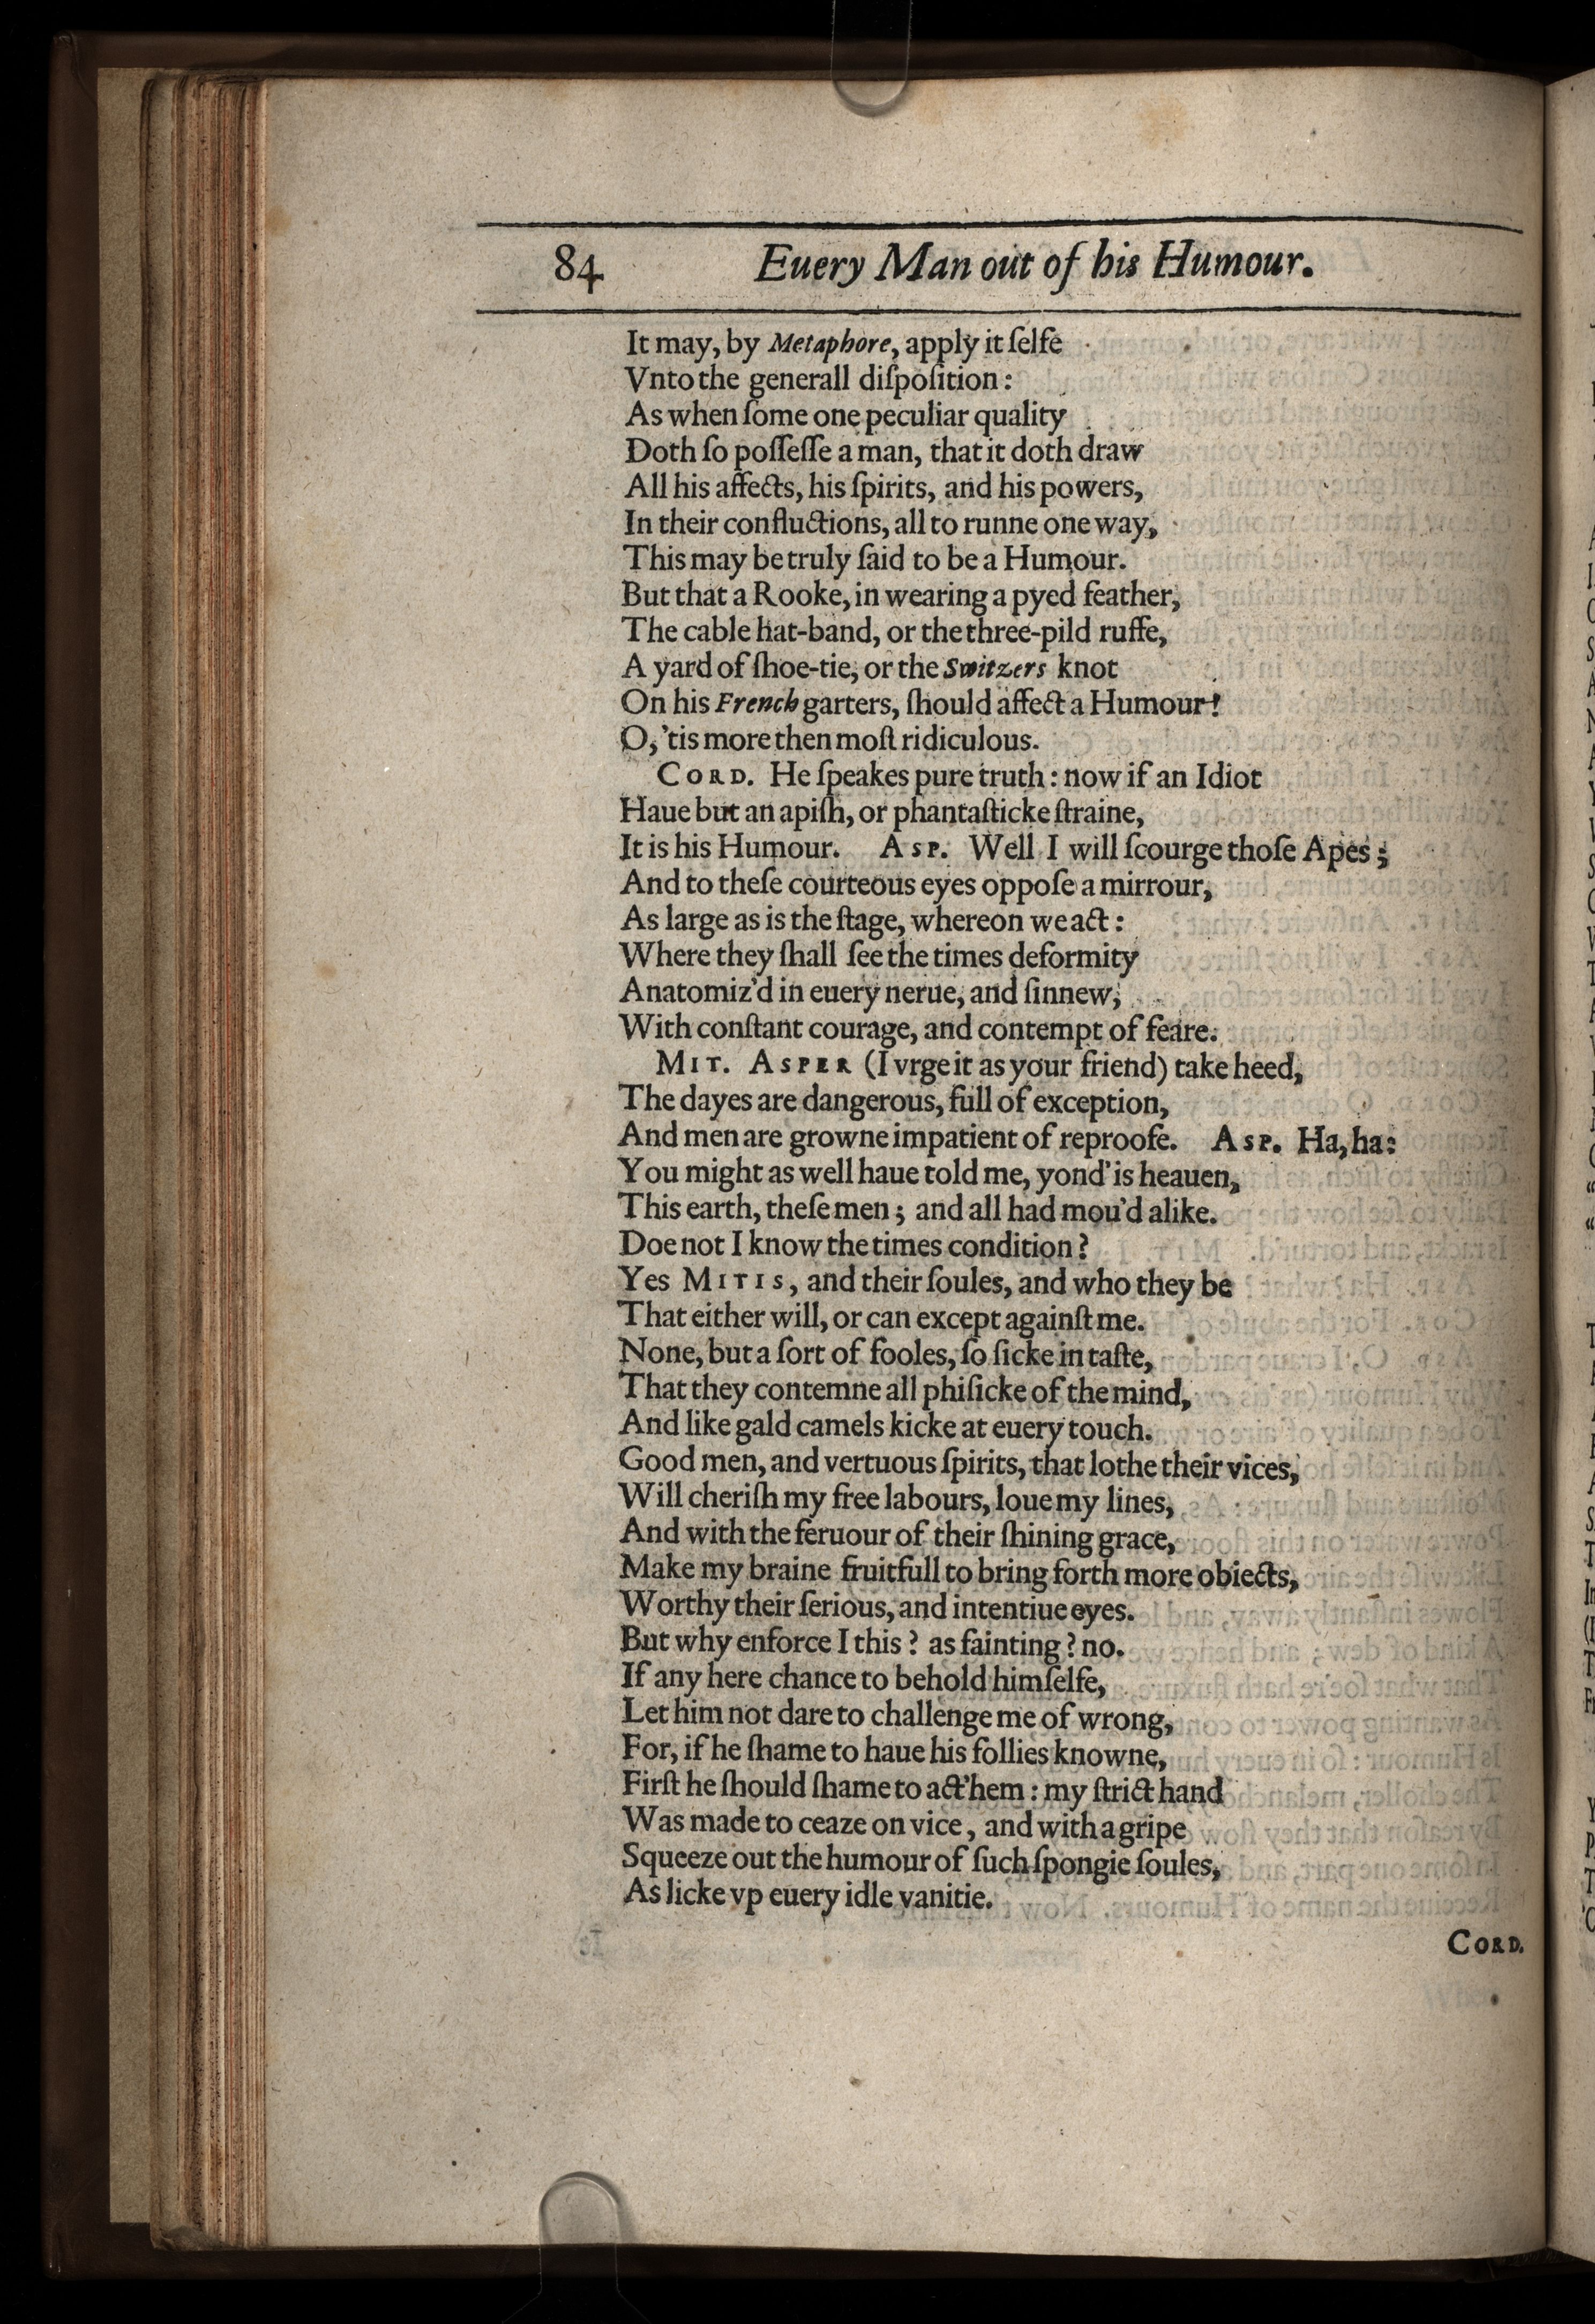 84 Euery Man out of his Humour.
It may, by Metaphore, apply it ſelfe
Vnto the generall diſpoſition:
As when ſome one peculiar quality
Doth ſo poſſeſſe a man, that it doth draw
All his affects, his ſpirits, and his powers,
In their confluctions, all to runne one way,
This may be truly ſaid to be a Humour.
But that a Rooke, in wearing a pyed feather,
The cable hat-band, or the three-pild ruffe,
A yard of ſhoe-tie, or the Switzers knot
On his French garters, ſhould affect a Humour!
O, 'tis more then moſt ridiculous.
CORD. He ſpeakes pure truth: now if an Idiot
Haue but an apiſh, or phantaſticke ſtraine,
It is his Humour. ASP. Well I will ſcourge thoſe Apes;
And to theſe courteous eyes oppoſe a mirrour,
As large as is the ſtage, whereon we act:
Where they ſhall ſee the times deformity
Anatomiz'd in euery nerue, and ſinnew,
With conſtant courage, and contempt of feare.
MIT. ASPER (I vrge it as your friend) take heed,
The dayes are dangerous, full of exception,
And men are growne impatient of reproofe. ASP. Ha, ha:
You might as well haue told me, yond' is heauen,
This earth, theſe men; and all had mou'd alike.
Doe not I know the times condition?
Yes MITIS, and their ſoules, and who they be
That either will, or can except againſt me.
None, but a ſort of fooles, ſo ſicke in taſte,
That they contemne all phiſicke of the mind,
And like gald camels kicke at euery touch.
Good men, and vertuous ſpirits, that lothe their vices,
Will cheriſh my free labours, loue my lines,
And with the feruour of their ſhining grace,
Make my braine fruitfull to bring forth more obiects,
Worthy their ſerious, and intentiue eyes.
But why enforce I this? as fainting? no.
If any here chance to behold himſelfe,
Let him not dare to challenge me of wrong,
For, if he ſhame to haue his follies knowne,
Firſt he ſhould ſhame to act'hem: my ſtrict hand
Was made to ceaze on vice, and with a gripe
Squeeze out the humour of ſuch ſpongie ſoules,
As licke vp euery idle vanitie.
CORD.